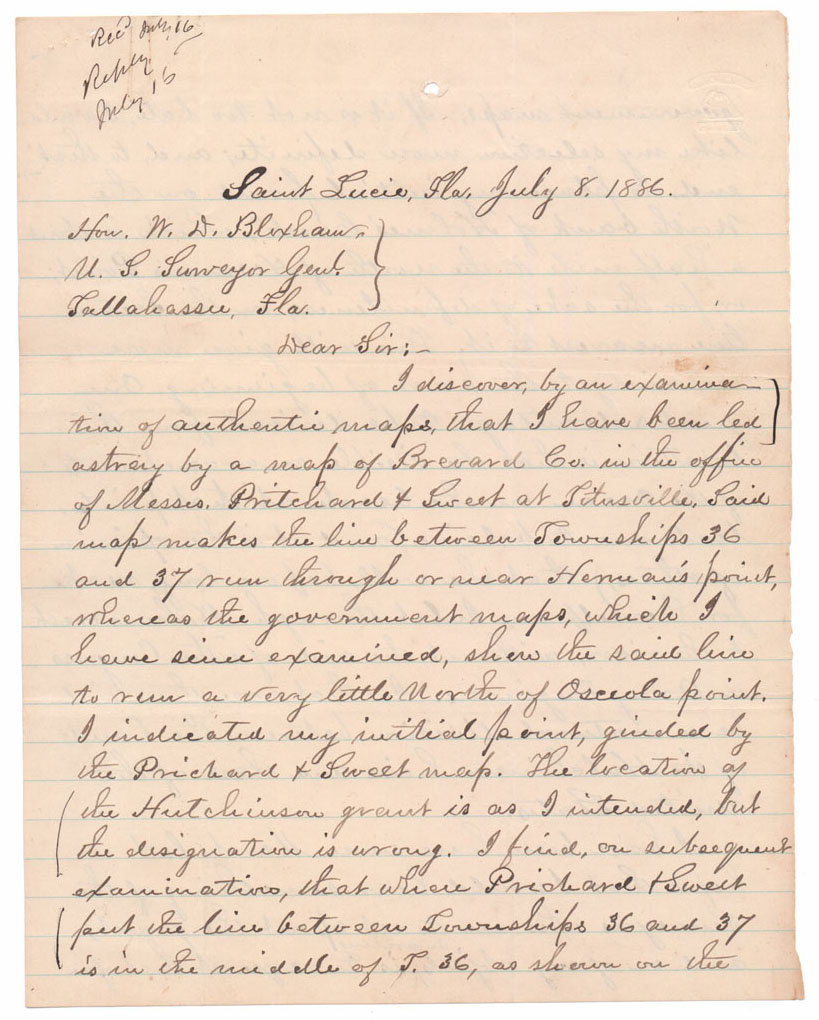 Rec'd July 16
Reply
July 16
Saint Lucie, Fla. July 8. 1886.
Hon. W. D. Bloxham,
U. S. Surveyor Genl.
Tallahassee, Fla.
Dear Sir:-
I discover, by an examina-
tion of authentic maps, that I have been led
astray by a map of Brevard Co. in the office
of Messrs. Pritchard & Sweet at Titusville. Said
map makes the line between Townships 36
and 37 run through or near Herman's point,
whereas the government maps, which I
have since examined, show the said line
to run a very little North of Osceola point.
I indicated my initial point, guided by
the Prichard & Sweet map. The location of
the Hutchinson grant is as I intended, but
the designation is wrong. I find, on subsequent
examination, that where Prichard & Sweet
put the line between Townships 36 and 37
is in the middle of T. 36, as shown on the